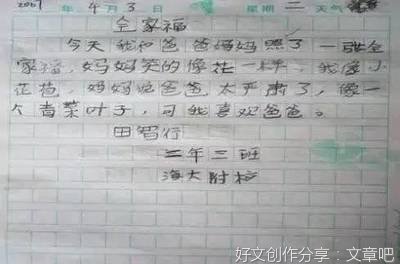 2007 年 4 月 3 日 星期 二 天气
全家福
今天我和爸爸妈妈照了一张全
家福，妈妈笑的像花一样，我像小
花苞，妈妈说爸爸太严肃了，像一
个青菜叶子，可我喜欢爸爸。
田智行
二年三班
海大附校
好文创作分享：文章吧